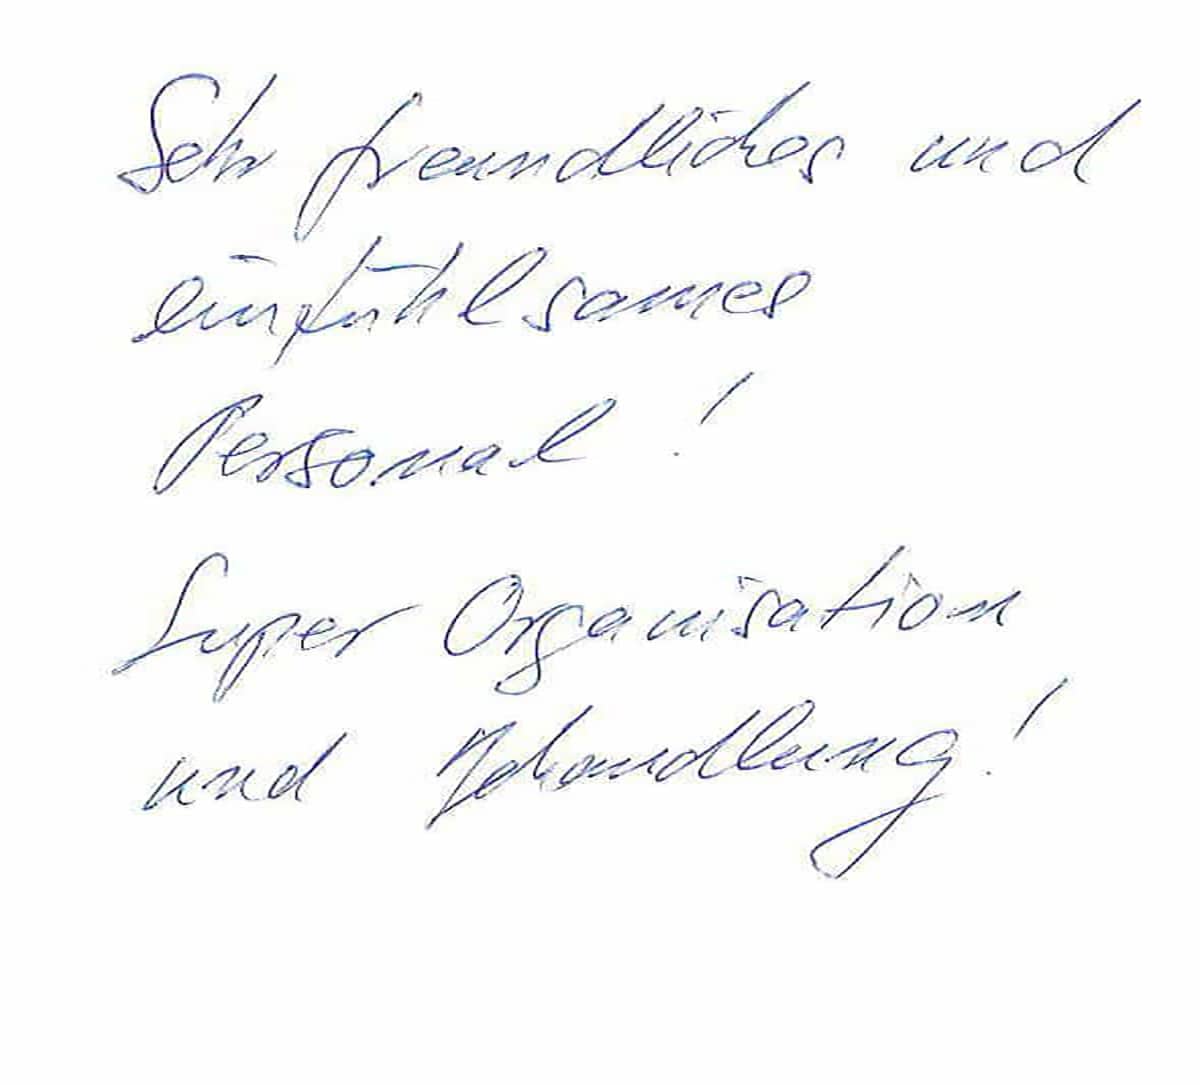 Sehr freundliches und
einfühlsames
Personal!
Super Organisation
und Behandlung!